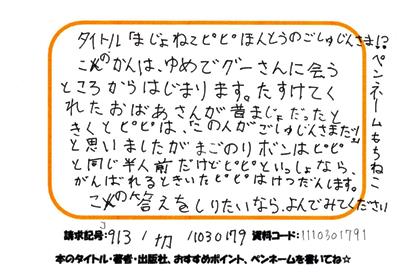 タイトル「まじょねこピピほんとうのごしゅじんさま!?
ペンネームももちねこ
このかんは、ゆめでグーさんに会う
ところからはじまります。たすけてく
れたおばあさんが昔まじょだったと
きくとピピは、「この人がごしゅじんさまだ!!」
と思いましたがまごのリボンはピピ
と同じ半人前だけどピピといっしょなら、
がんばれるときいたピピはけつだんします。
この答えをしりたいなら、よんでみてください
請求記号 J913 / カ / 1030179 資料コード:1110301791
本のタイトル・著者・出版社、おすすめポイント、ペンネームを書いてね☆